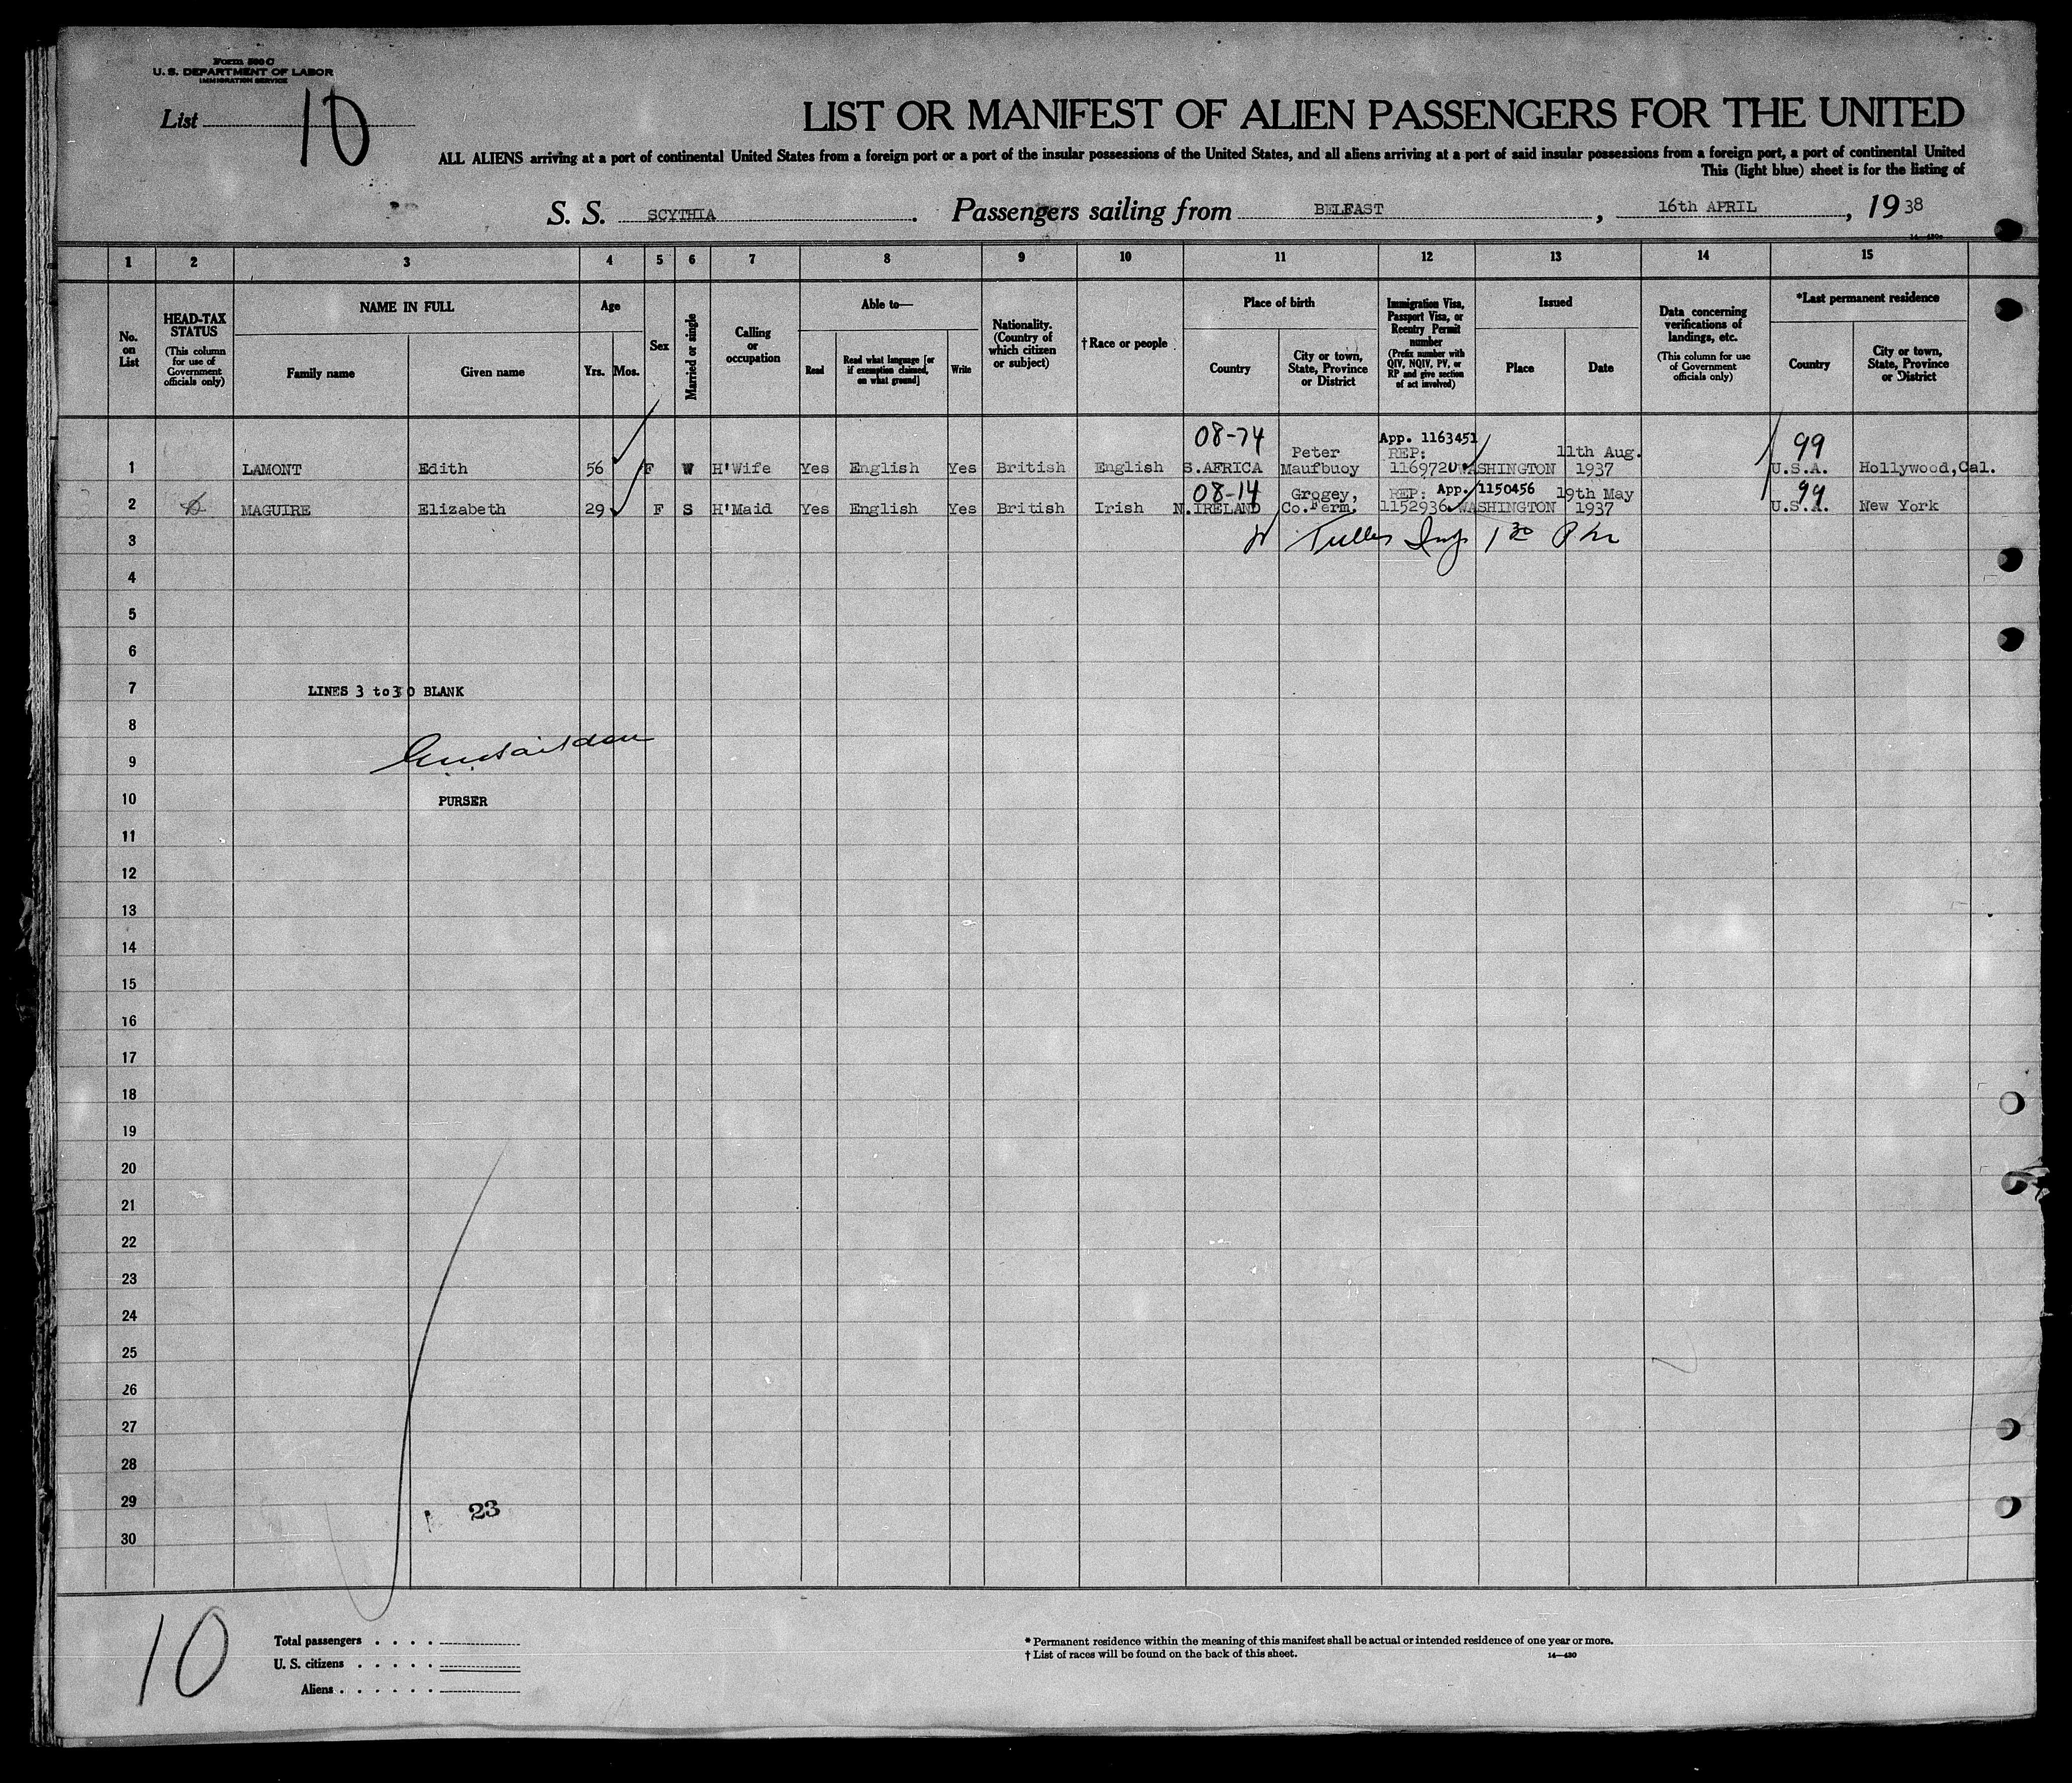 Form 500 C
U. S. DEPARTMENT OF LABOR
IMMIGRATION SERVICE
List 10
LIST OR MANIFEST OF ALIEN PASSENGERS FOR THE UNITED
ALL ALIENS arriving at a port of continental United States from a foreign port or a port of the insular possessions of the United States, and all aliens arriving at a port of said insular possessions from a foreign port, a port of continental United
This (light blue) sheet is for the listing of
S. S. SCYTHIA. Passengers sailing from BELFAST, 16th APRIL, 1938
1 2 3 4 5 6 7 8 9 10 11 12 13 14 15
No. on List
HEAD-TAX STATUS (This column for use of Government officials only)
NAME IN FULL
Family name Given name
Age
Yrs. Mos.
Sex
Married or single
Calling or occupation
Able to—
Read
Read what language [or if exemption claimed, on what ground]
Write
Nationality. (Country of which citizen or subject)
†Race or people
Place of birth
Country
City or town, State, Province or District
Immigration Visa, Passport Visa, or Reentry Permit number (Prefix number with QIV, NQIV, PV, or RP and give section of act involved)
Issued
Place Date
Data concerning verifications of landings, etc. (This column for use of Government officials only)
*Last permanent residence
Country
City or town, State, Province or District
08-74 App. 1163451 99
Peter REP: 11th Aug.
1 LAMONT Edith 56 F W H'Wife Yes English Yes British English S.AFRICA Maufbuoy 1169720 WASHINGTON 1937 U.S.A. Hollywood,Cal.
08-14 Grogey, REP: App. 1150456 19th May 99
2 MAGUIRE Elizabeth 29 F S H'Maid Yes English Yes British Irish N.IRELAND Co.Ferm. 1152936 WASHINGTON 1937 U.S.A. New York
3
4
5
6
7 LINES 3 to 30 BLANK
8
9
10 PURSER
11
12
13
14
15
16
17
18
19
20
21
22
23
24
25
26
27
28
29 23
30
10
Total passengers
U. S. citizens
Aliens
* Permanent residence within the meaning of this manifest shall be actual or intended residence of one year or more.
† List of races will be found on the back of this sheet. 14—430